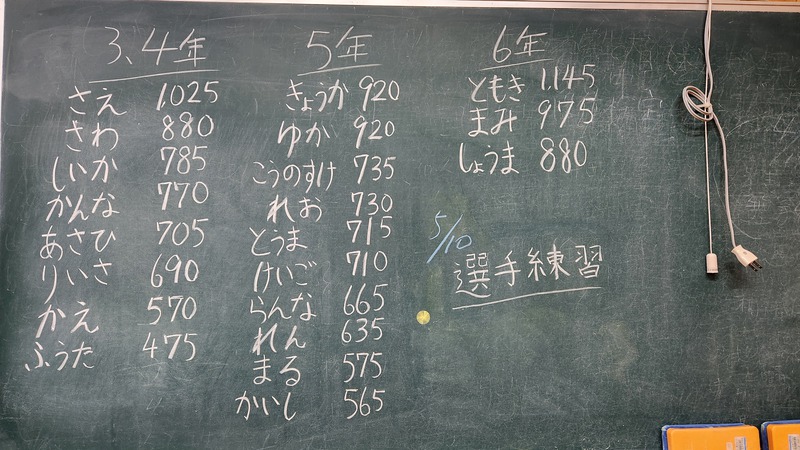 3、4年
さえ 1,025
さわ 880
しいか 785
かんな 770
あさひ 705
りいさ 690
かえ 570
ふうた 475
5年
きょうか 920
ゆか 920
こうのすけ 735
れお 730
とうま 715
けいご 710
らんな 665
れん 635
まる 575
かいし 565
6年
ともき 1,145
まみ 975
しょうま 880
5/10
選手練習